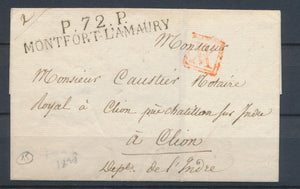 P.72.P.
MONTFORT-L'AMAURY
Monsieur
Monsieur Caustier Notaire
Royal à Clion près chatillon sur Indre
à Clion
Dépt. de l'Indre